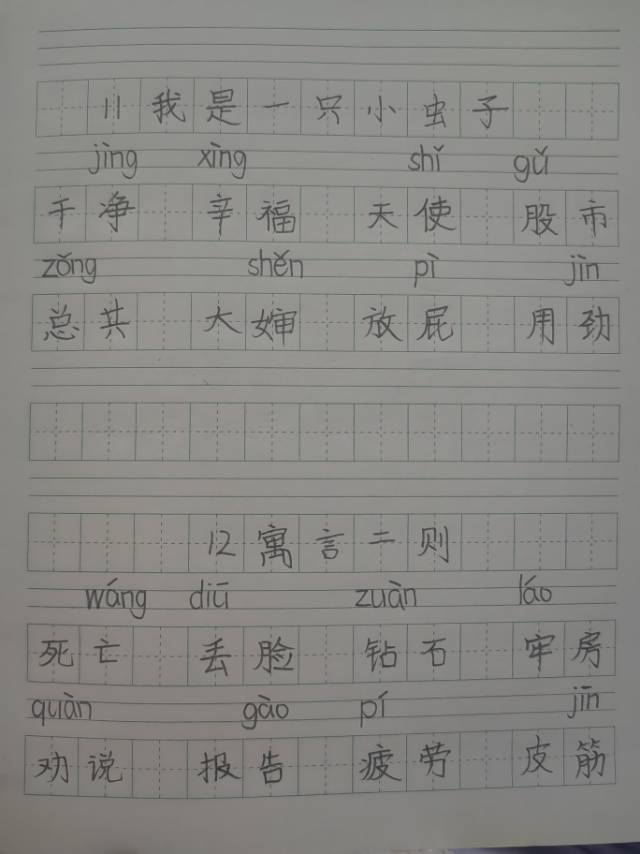 11 我是一只小虫子
jìng xìng shǐ gǔ
干净 辛福 天使 股市
zǒng shěn pì jìn
总共 大婶 放屁 用劲
12 寓言二则
wáng diū zuàn láo
死亡 丢脸 钻石 牢房
quàn gào pí jīn
劝说 报告 疲劳 皮筋